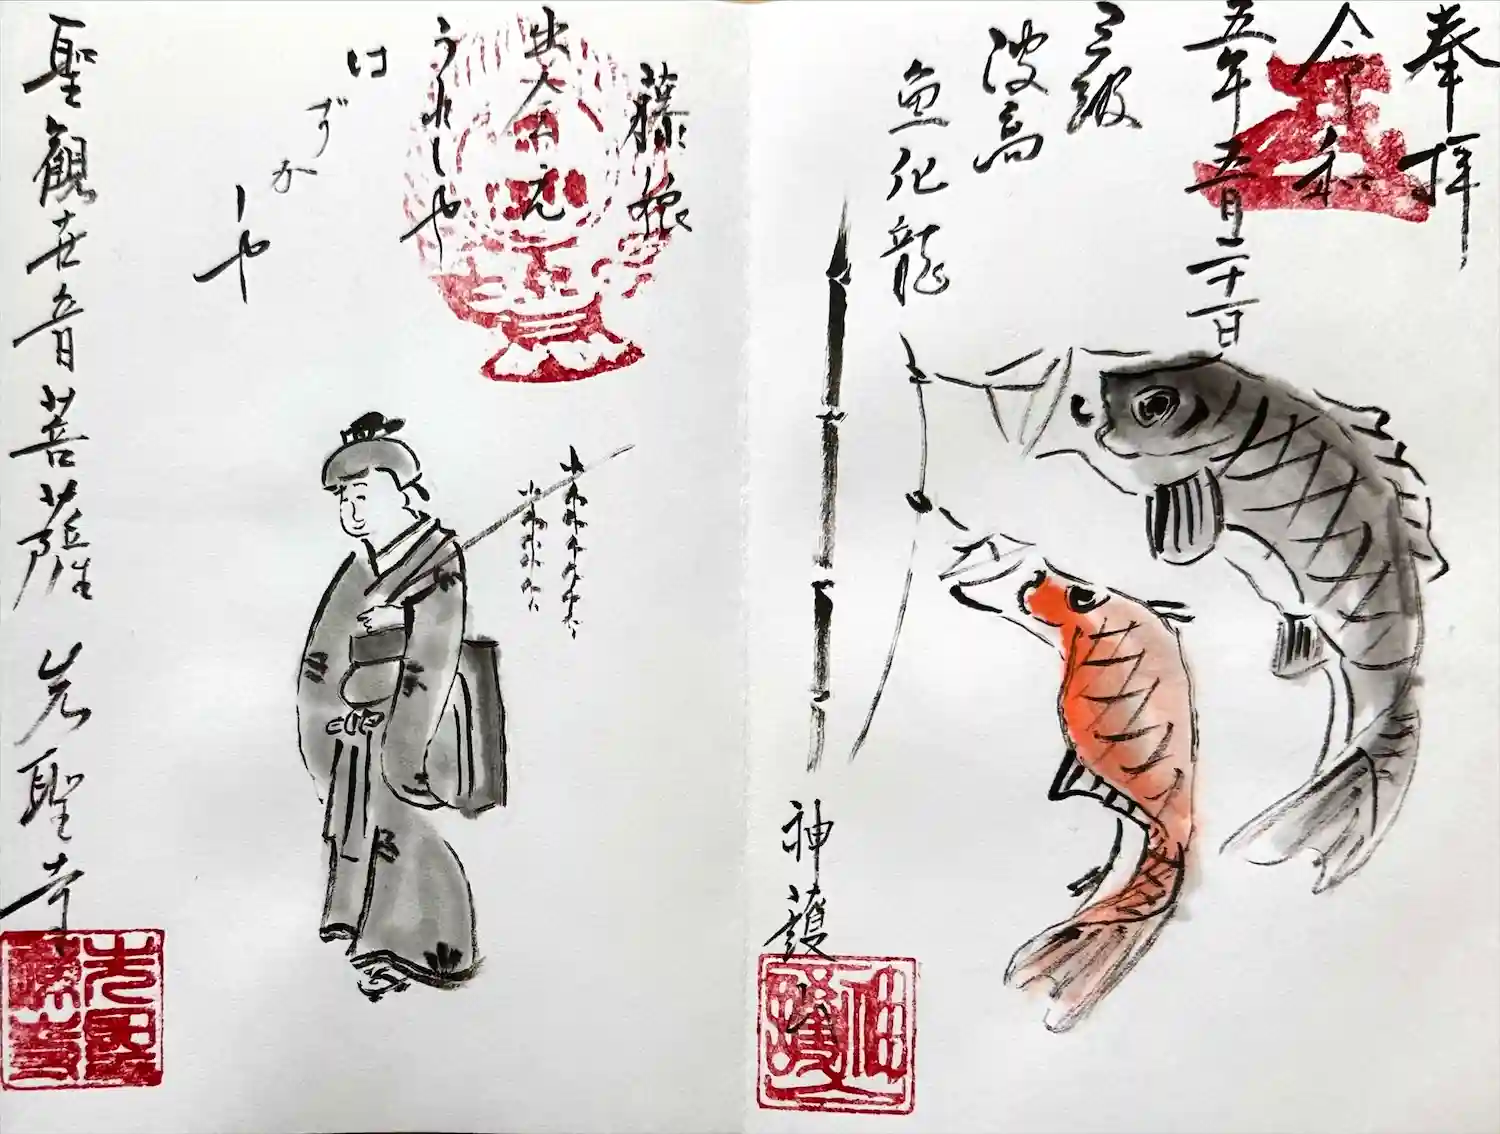 奉拝
令和
五年五月二十一日
三級
波高
魚化龍
神護山
藤娘
出会え
うれしや
は
ずか
しや
聖觀世音菩薩 光聖寺